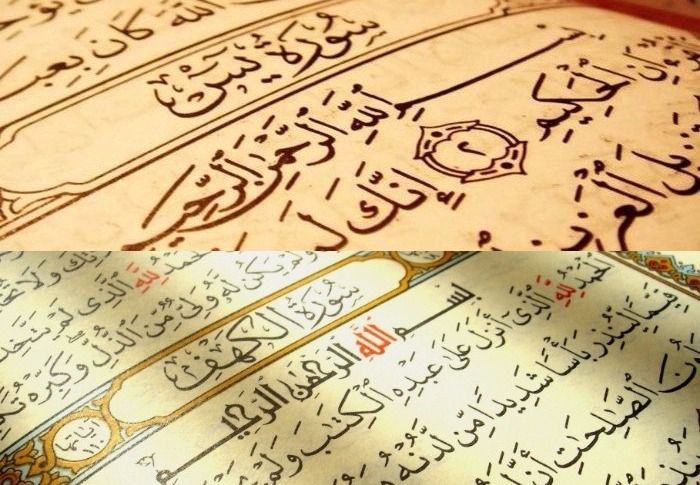 ٱللَّهَ كَانَ بِعِبَ
سُورَةُ يسٓ
بِسْمِ ٱللَّهِ ٱلرَّحْمَٰنِ ٱلرَّحِيمِ
ٱلْحَكِيمِ ٢ إِنَّكَ لَ
ٱلْعَزِيزِ
لِلَّهِ ٱلَّذِى لَمْ يَتَّخِذْ
يَكُن لَّهُۥ وَلِىٌّ مِّنَ ٱلذُّلِّ وَكَبِّرْهُ
سُورَةُ ٱلْكَهْفِ
بِسْمِ ٱللَّهِ ٱلرَّحْمَٰنِ ٱلرَّحِيمِ
ٱلْحَمْدُ لِلَّهِ ٱلَّذِىٓ أَنزَلَ عَلَىٰ عَبْدِهِ ٱلْكِتَٰبَ وَلَمْ
قَيِّمًا لِّيُنذِرَ بَأْسًا شَدِيدًا مِّن لَّدُنْهُ وَ
ٱلصَّٰلِحَٰتِ أَنَّ